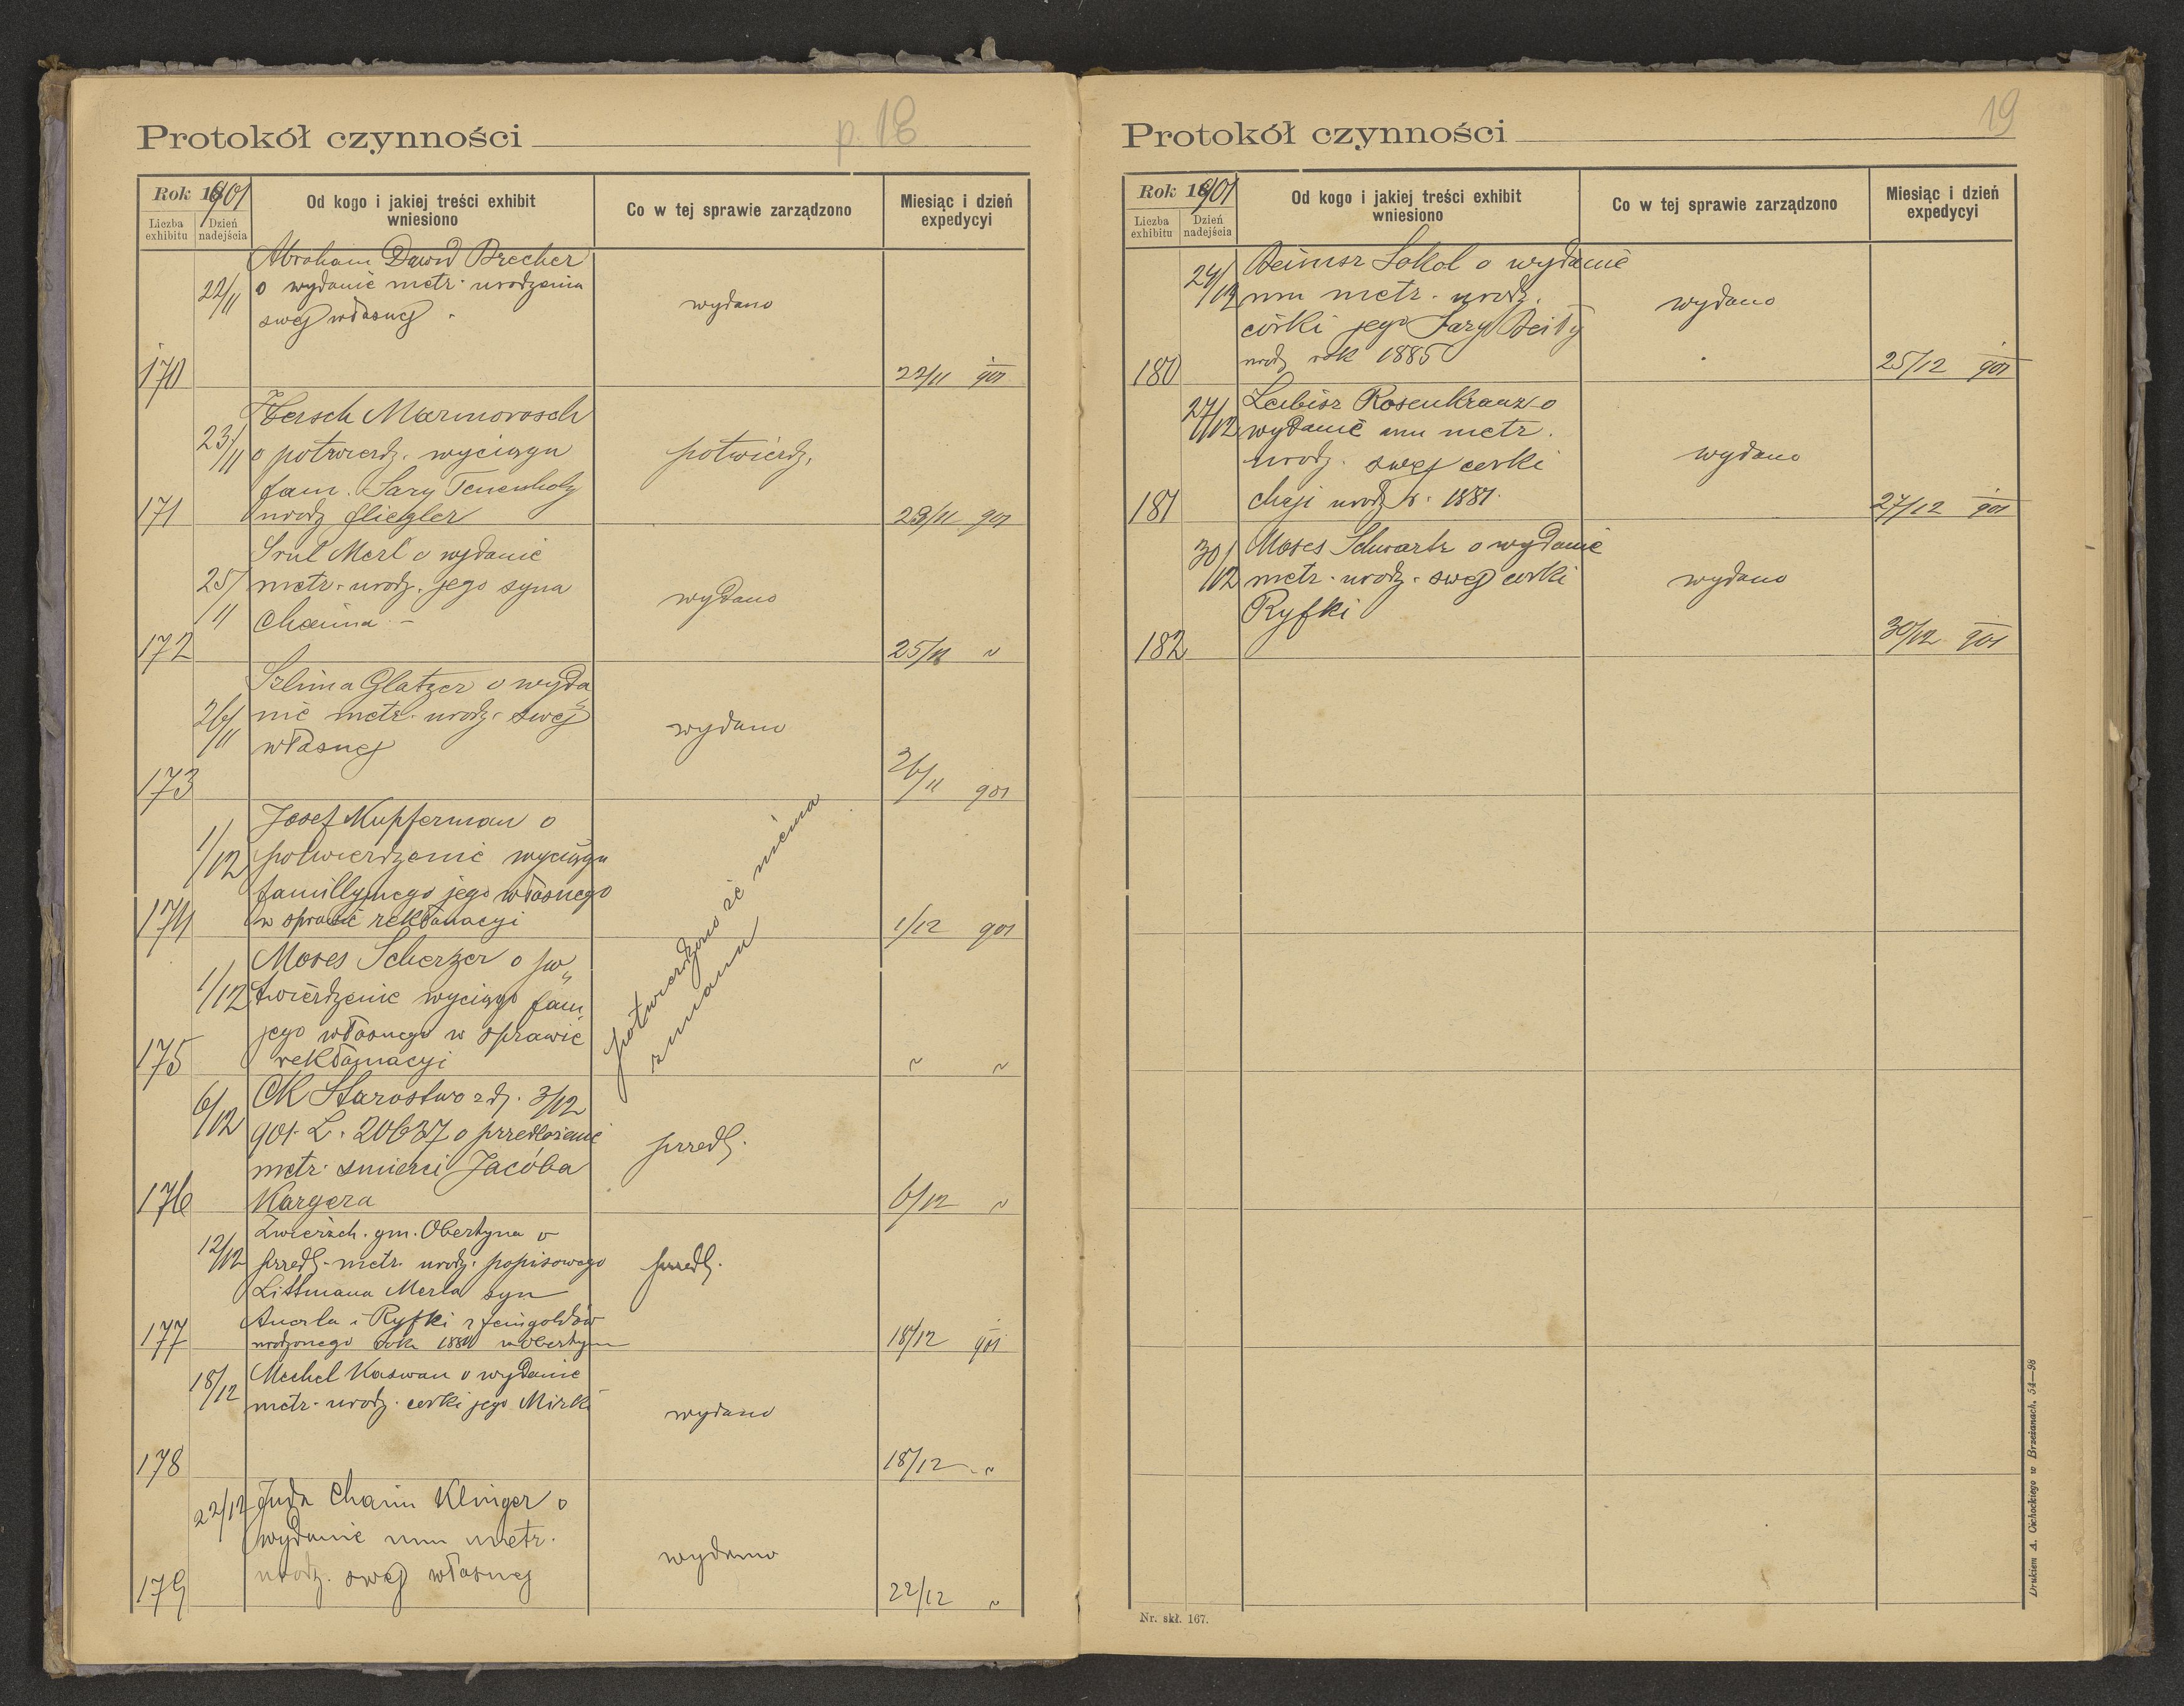 Protokół czynności
p. 18
Rok 1901
Liczba exhibitu
Dzień nadejścia
Od kogo i jakiej treści exhibit wniesiono
Co w tej sprawie zarządzono
Miesiąc i dzień expedycyi
Abraham Dawid Brecher
22/11 o wydanie metr. urodzenia
swej własnej.
wydano
170
22/11 901
Hersch Marmorosch
23/11 o potwierdz. wyciągu
fam. Sary Tenenholz
171 urodz Fliegler
potwierdz.
23/11 901
Srul Merl o wydanie
25/11 metr. urodz. jego syna
Chaima -
wydano
172
25/11 "
Szlima Glatzer o wyda
26/11 nie metr. urodz. swej
własnej
wydano
173
26/11 901
Josef Kupferman o
1/12 potwierdzenie wyciągu
famillyjnego jego własnego
174 w sprawie reklamacyi
1/12 901
potwierdzono że niema
zmian
Moses Scherzer o po
1/12 twierdzenie wyciągo fam.
jego własnego w sprawie
175 reklamacyi
" "
CK Starostwo zdj. 3/12
6/12 901. L. 20637 o przedłożenie
metr. smierci Jacóba
176 Kargera
przedł.
6/12 "
Zwierzch. gm. Obertyna o
12/12 przedł. metr. urodz. popisowego
Littmana Merla syn
Ancrla i Ryfki z Feingoldów
177 urodzonego roku 1880 w Obertyn
przedł.
18/12 901
18/12 Mechel Kaswan o wydanie
metr. urodz. corki jego Mirki
wydano
178
18/12 "
22/12 Juda Chaim Klinger o
wydanie mu metr.
urodz. swej własnej
wydano
179
22/12 "
Protokół czynności
19
Rok 1901
Liczba exhibitu
Dzień nadejścia
Od kogo i jakiej treści exhibit wniesiono
Co w tej sprawie zarządzono
Miesiąc i dzień expedycyi
24/12 Sokol o wydanie
mu metr. urodz.
córki jego Sary Beily
180 urodz rok 1885
wydano
25/12 901
27/12 Leibisz Rosenkranz o
wydanie mu metr.
urodz. swej corki
181 Chaji urodz r. 1881.
wydano
27/12 901
30/12 Moses Schwartz o wydanie
metr. urodz. swej corki
Ryfki
wydano
182
30/12 901
Nr. skł. 167.
Drukiem A. Cichockiego w Brzeżanach. 54—98